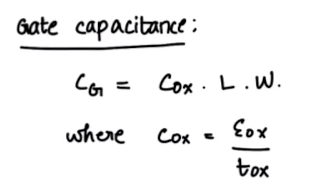 Gate capacitance:
CG = Cox . L . W.
where Cox = εox
tox